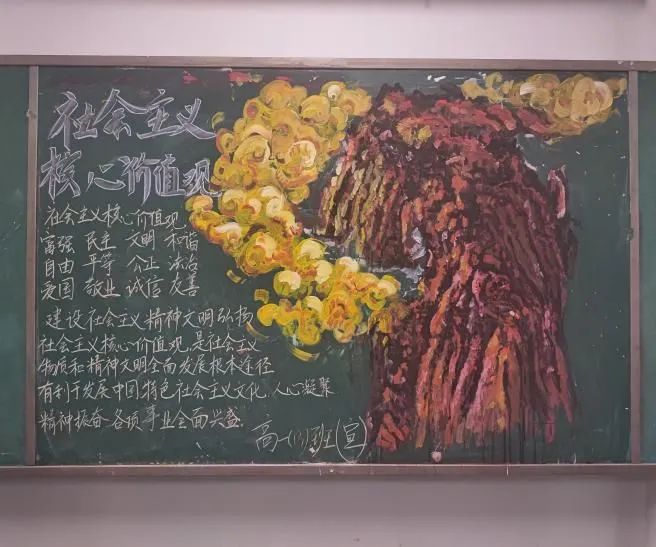 社会主义
核心价值观
社会主义核心价值观
富强 民主 文明 和谐
自由 平等 公正 法治
爱国 敬业 诚信 友善
建设社会主义精神文明弘扬
社会主义核心价值观,是社会主义
物质和精神文明全面发展根本途径
有利于发展中国特色社会主义文化.人心凝聚
精神振奋各项事业会面兴盛.
高一(13)班(宣)